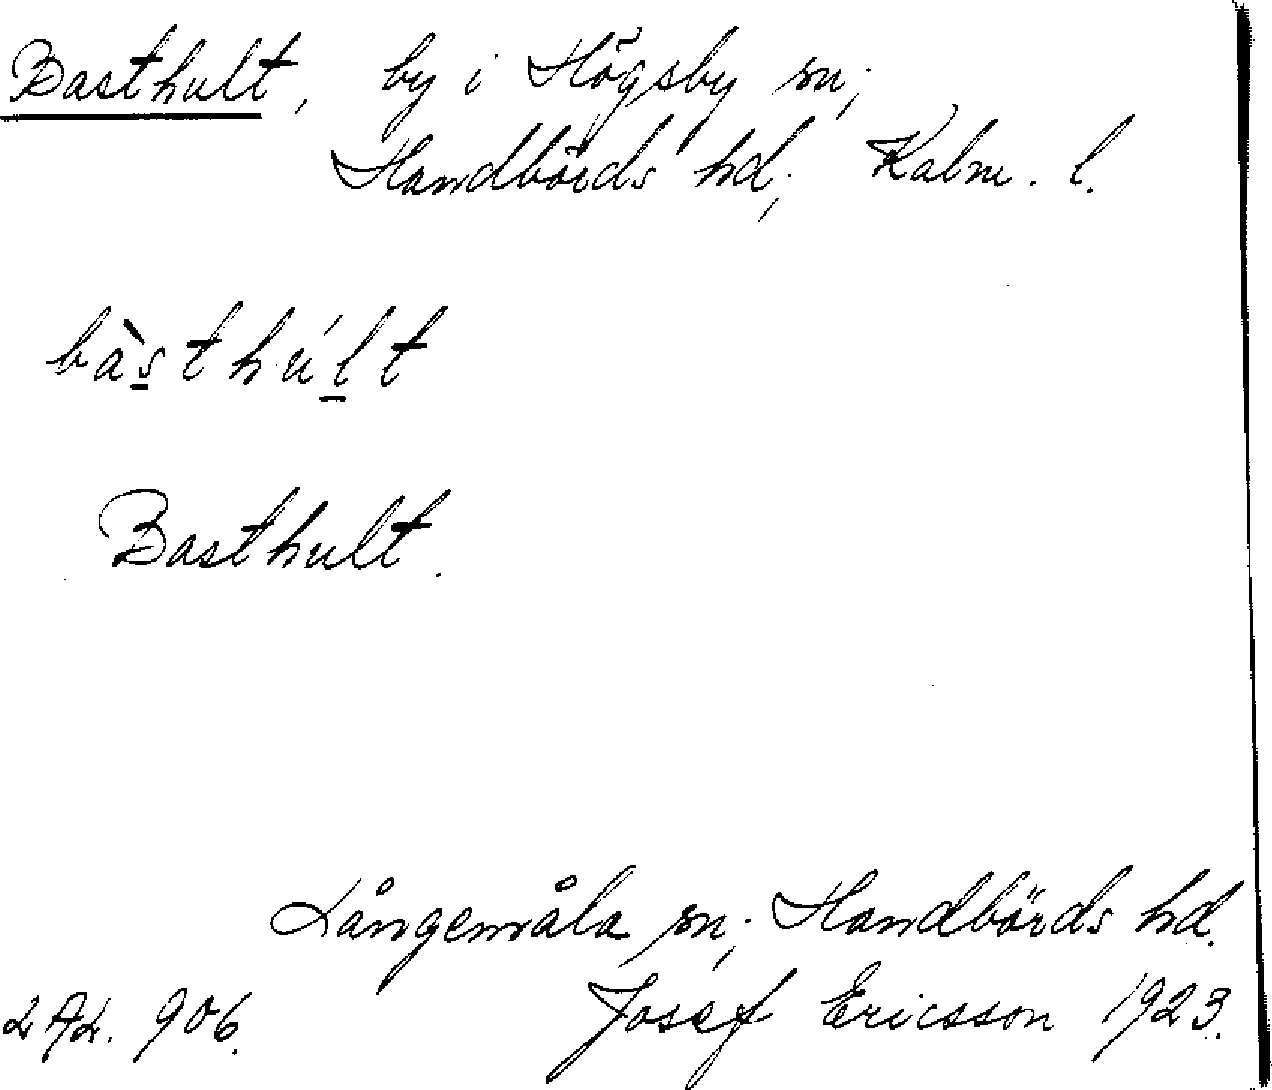 Basthult, by i Högsby sn;
Handbörds hd; Kalm. l.
bàsthúlt
Basthult.
Långemåla sn; Handbörds hd.
LAL. 906. Josef Ericsson 1923.